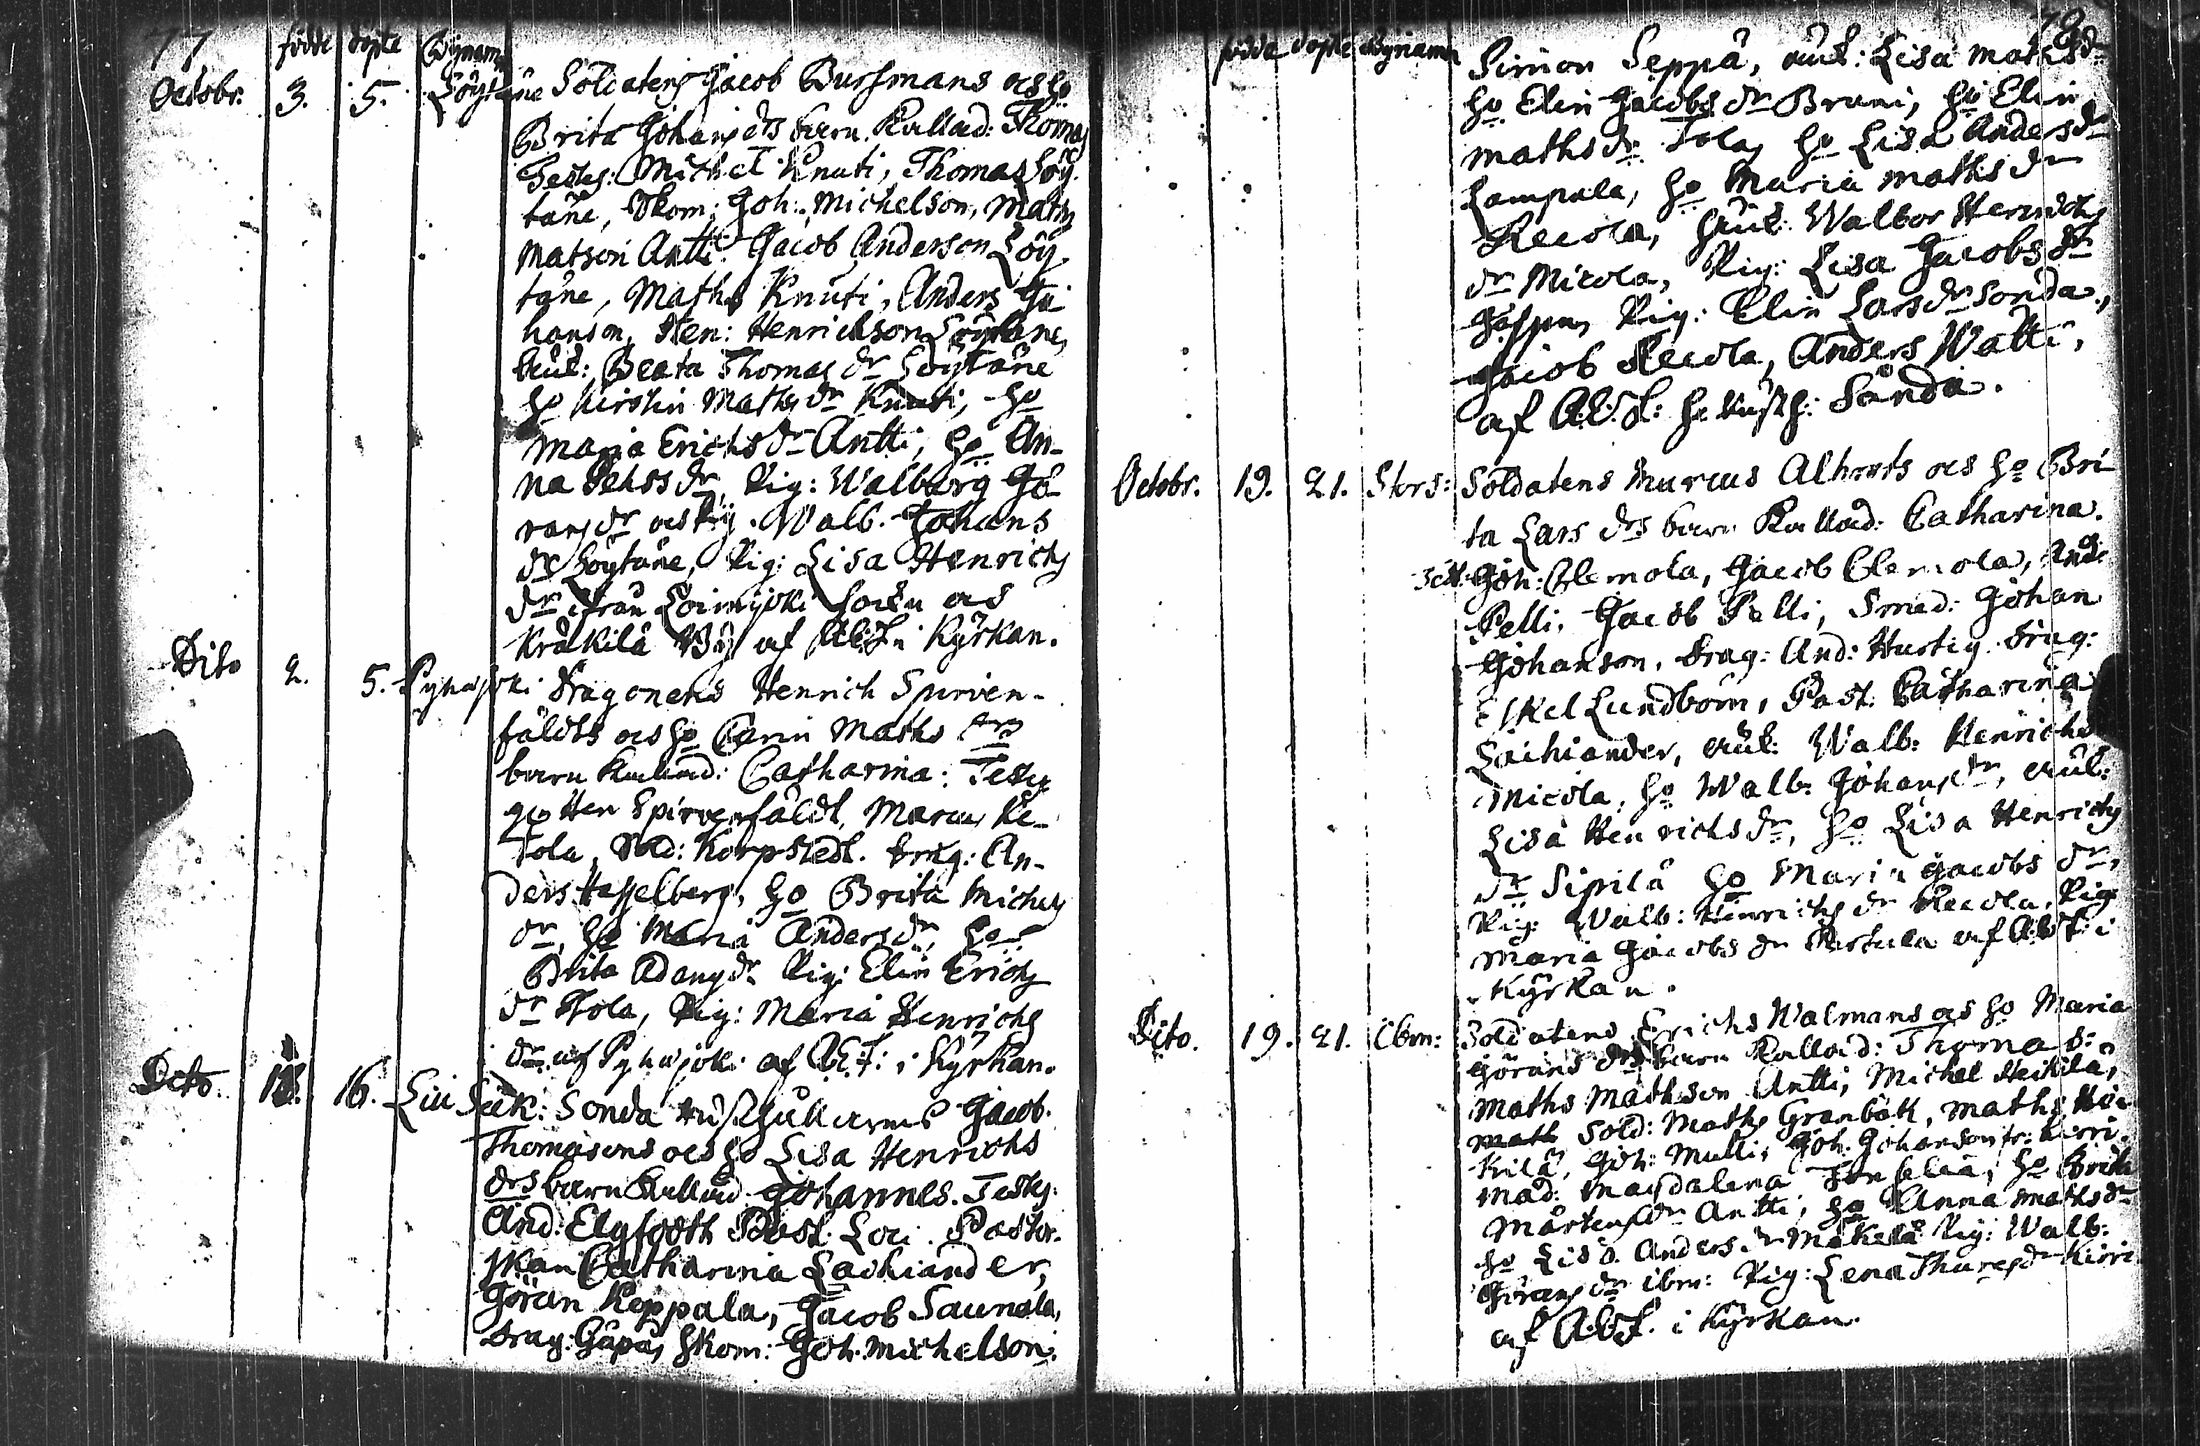 77 födde döpte Bynamn
Octobr. 3. 5. Löytäne Soldatens Jacob Bussmans och ho
Brita Johans drs barn Kallad: Thomas
Testes: Michel Knuti, Thomas Löy
täne, Skom: Joh: Michelson, Maths
Matson Antti. Jacob Anderson Löy
täne, Maths Knuti, Anders Jo
hanson, Hen: Henrichson Löytäne,
Beata Thomas dr Löytäne
ho Kirstin Maths dr Knuti, ho
Maria Erichs dr Antti, ho An-
na dr, Pig: Walborg Gö
rans dr och Pig. Walb. Johans
dr Löytäne, Pig: Lisa Henrichs
dr ifrån Loimijoki Sokn och
Kråkilä By af A:W:F: i Kyrkan.
Dito 2. 5. Pyhajoki Dragonens Henrich Spirven-
fäldts och ho Carin Maths drs
barn Kallad: Catharina: Testes
Hen Spirvenfäldt, Marcus Ke-
tola, Sold: Korpstedt. Drag: An-
ders Hasselberg, ho Brita Michels
dr, ho Maria Anders dr, ho
Brita Adams dr Pig: Elin Erichs
dr Tola, Pig: Maria Henrichs
dr af Pyhajoki af A.W.F: i Kyrkan.
Dito. 16. Sonda Jacob
Thomasons och ho Lisa Henrichs
drs barn Kallad Johannes. Testes:
And: Elgfooth Past: Loci. Pastor-
skan Catharina Lachiander,
Göran Reppala, Jacob Saunala,
Drag: Gåpå, Skom: Joh. Michelson.
födde döpte Bynamn 78
Simon Seppä, Lisa Maths dr
ho Elin Jacobs dr Bruni, ho Elin
Maths dr Tola, ho Lisa Anders dr
Lampala, ho Maria Maths dr
Recola, Walbor Henrichs
dr Micola, Pig: Lisa Jacobs dr
Pig: Elin Lars dr Sonda,
Jacob Recola, Anders Watti,
af A.W.F: Sånda.
Octobr. 19. 21. Stors: Soldatens Marcus Alhorts och ho Bri
ta Lars drs barn Kallad: Catharina.
Joh: Clemola, Jacob Clemola, And:
Pelli, Jacob Pelli, Smed: Johan
Johanson, Drag: And: Hurtig Drag:
Eskel Lundbom, Past: Catharina
Lachiander, Walb: Henrichs
Micola, ho Walb: Johans dr,
Lisa Henrichs dr, ho Lisa Henrichs
dr Sipilä ho Maria Jacobs dr,
Pig: Walb: Henrichs dr Recola, Pig
Maria Jacobs dr af A.W.F: i
Kyrkan.
Dito. 19. 21. Ibm: Soldatens Erichs Walmans och ho Maria
Görans drs barn Kallad: Thomas:
Maths Mathson Antti, Michel Heikilä,
Sold: Maths Granbäck, Maths Hei
kilä, Joh: Mulli, Joh: Johanson fr: Kirri.
Mad: Magdalena Fonselia, ho Brita
Mårtens dr Antti, ho Anna Maths dr
ho Lisa Anders dr Mäkelä Pig: Walb:
Görans dr ibm: Pig: Lena Thures dr Kirri
af A.W.F. i Kyrkan.